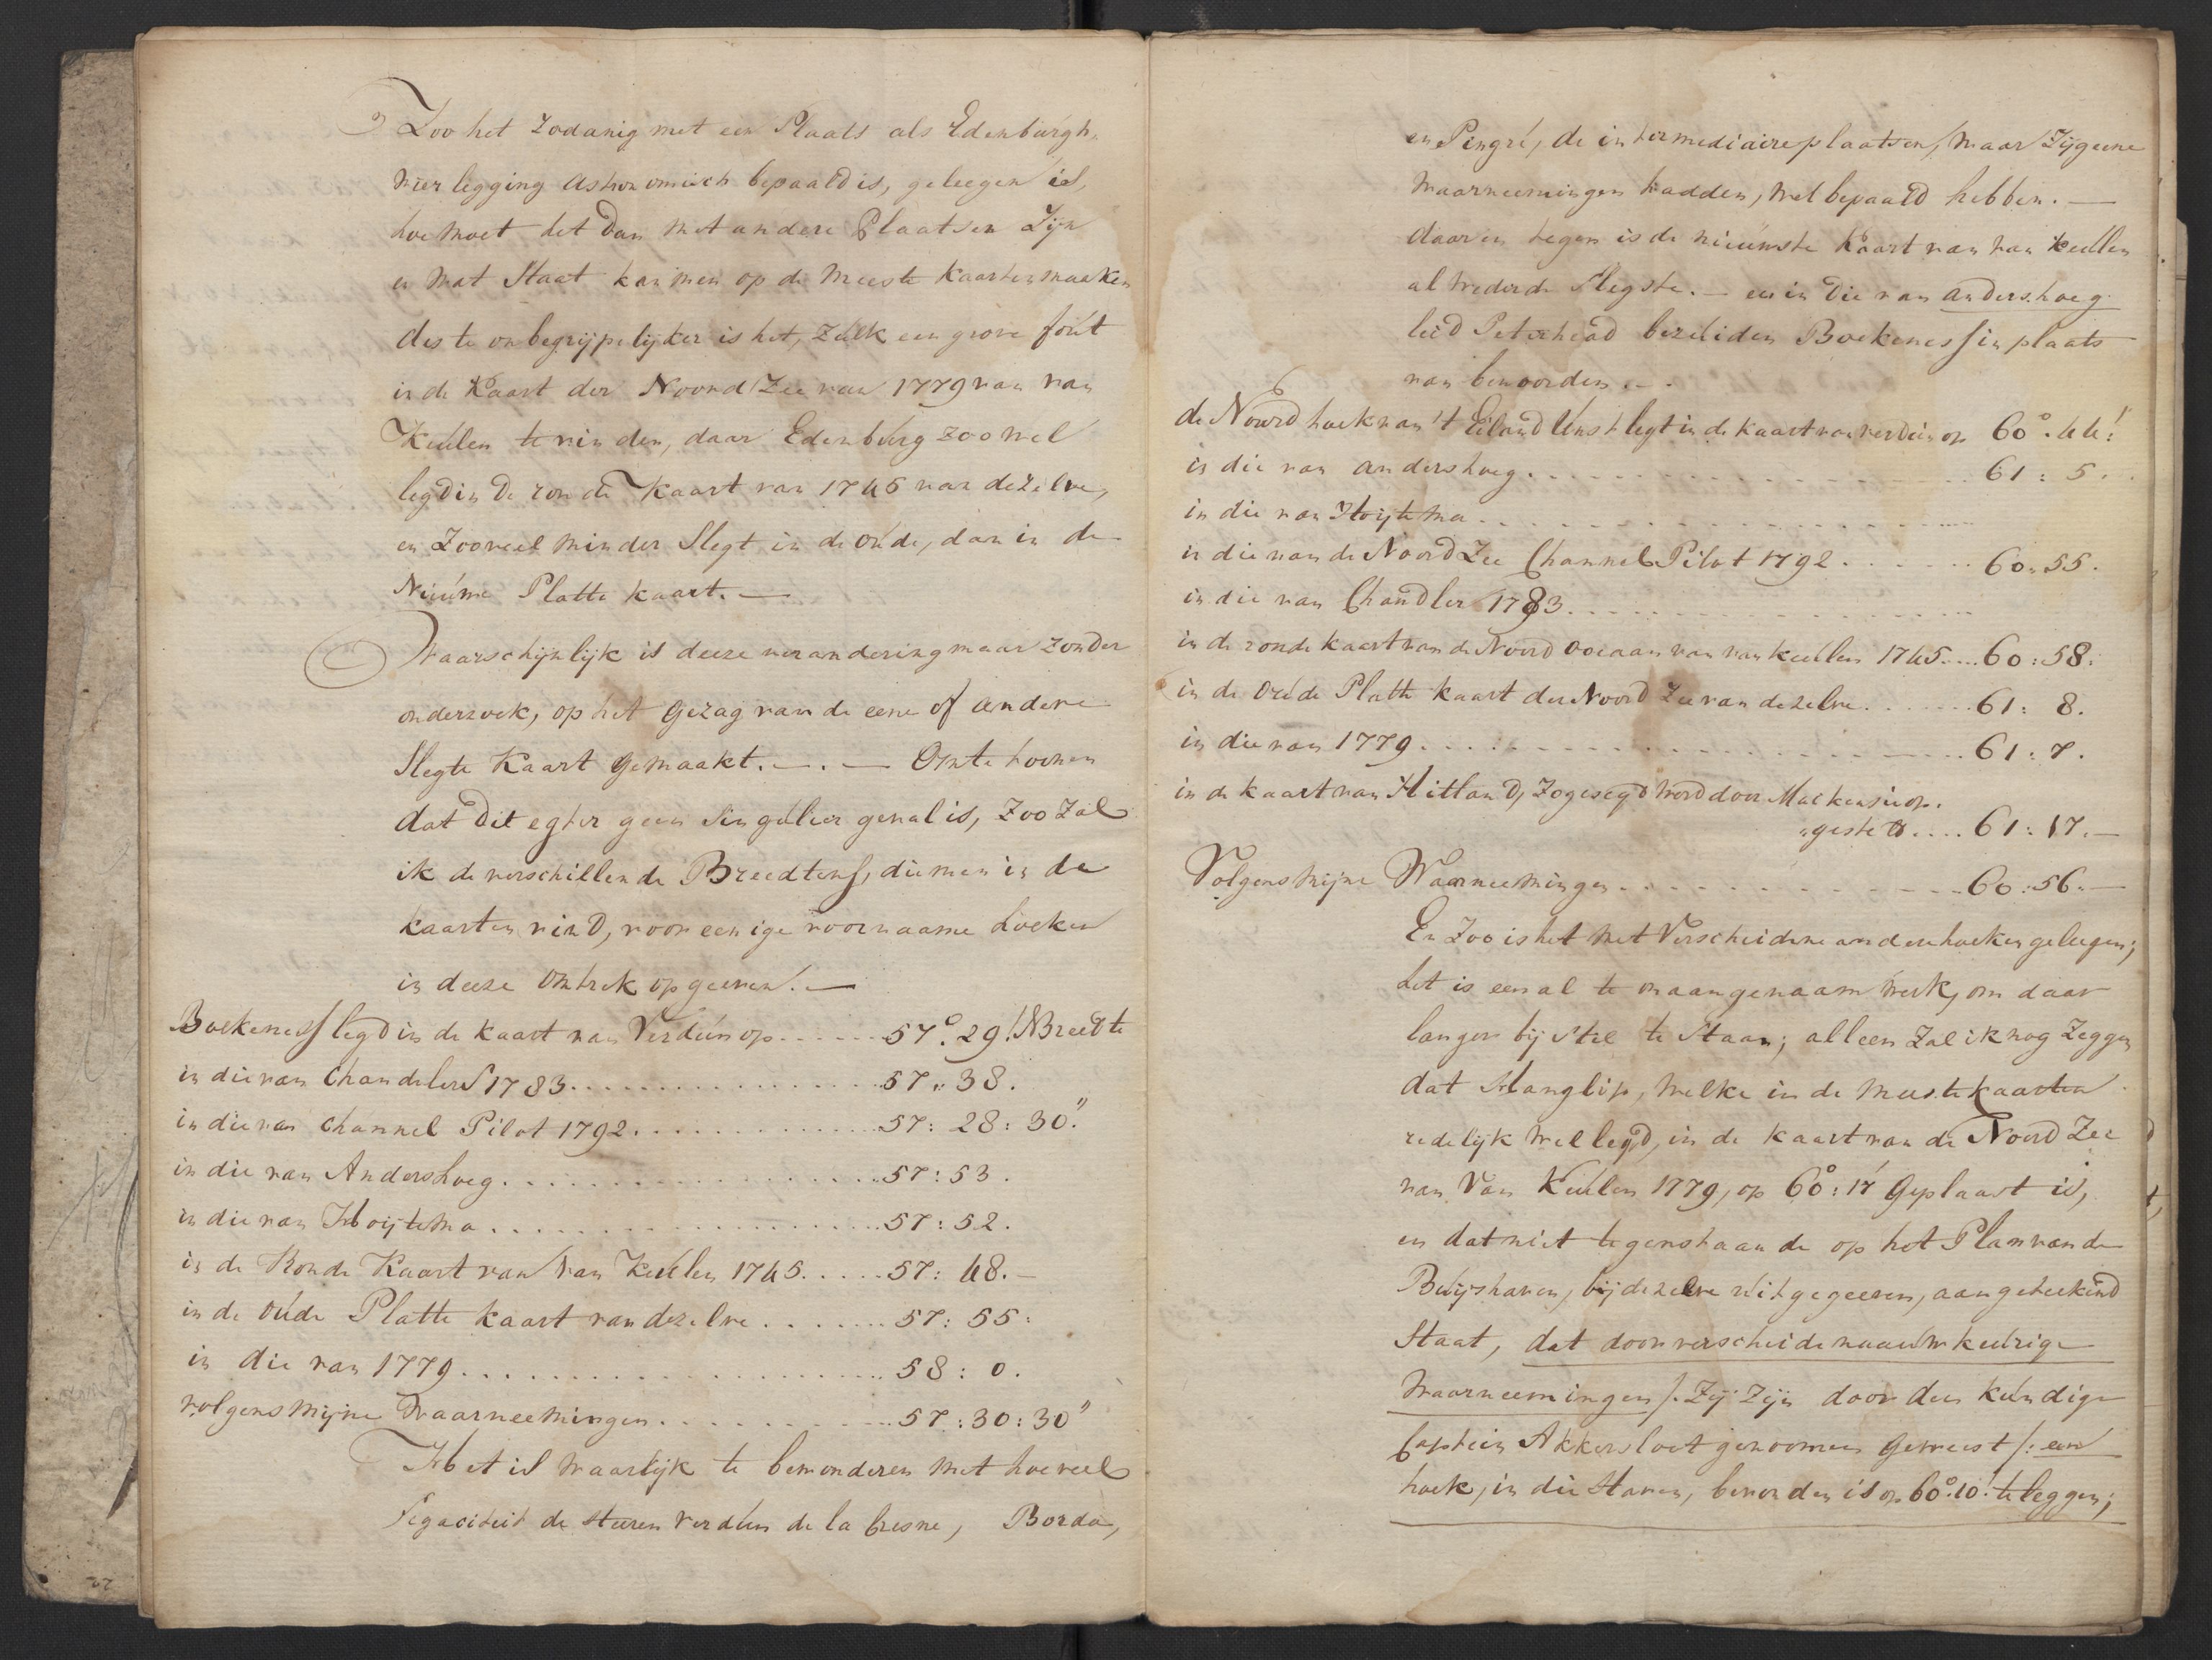 Zoo het zodanig met een Plaats als Edenburgh,
wier legging astronomisch bepaald is, geleegen is,
hoe moet het dan met andere Plaatsen Zijn
en wat Staat kan men op de meeste kaarten maaken
des te onbegrijpelijker is het, zulk een grove fout
in de Kaart der Noord Zee van 1779 van van
Keulen te vinden, daar Edenburg zoo wel
legd in de ronde Kaart van 1745 van dezelve,
en Zooveel minder Slegt in de oude, dan in de
Nieuwe Platte kaart. —
Waarschijnlijk is deeze verandering maar zonder
onderzoek, op het gezag van de eene of andere
Slegte Kaart gemaakt. —. — Om te toonen
dat dit egter geen Singulier geval is, Zoo Zal
ik de verschillende Breedtens, die men in de
kaarten vind, voor eenige voornaame hoeken
in deeze omtrek opgeeven. —
Boekeness legd in de kaart van Verdun op ...... 57°. 29! NBreedte
in die van Chandelers 1783 ................ 57 : 38.
in die van Channel Pilot 1792 .............. 57: 28: 30."
in die van Andershoeg .................... 57: 53.
in die van Hoijtema ..................... 57: 52.
in de Ronde Kaart van van Keulen 1745 ..... 57: 48. —
in de oude Platte kaart van dezelve ....... 57: 55:
in die van 1779 ..................... 58: 0.
volgens mijne Waarneemingen ............ 57: 30: 30"
Het is waarlijk te bewonderen met hoe veel
Segaciteit de Heeren Verdun de la Cresne, Borda,
en Pingré, de intermediaire plaatsen, waar Zij geene
waarneemingen hadden, wel bepaald hebben. —
daar en tegen is de nieuwste Kaart van van Keulen
al weder de Slegste. — en in die van andershoeg
leid Peterhead bezuiden Boekeness in plaats
van benoorden. —.
de Noord hoek van 't Eiland Unst legt in de kaart van verdun op 60°. 44!
in die van andershoeg ..................... 61: 5.
in die van Hoijtema .....................
in die van de Noord Zee Channel Pilot 1792 ...... 60: 55.
in die van Chandler 1783 .....................
in de ronde kaart van de Noord Oceaan van van Keulen 1745 .... 60: 58:
in de oude Platte kaart der Noord Zee van dezelve ....... 61: 8.
in die van 1779 ..................... 61: 7.
in de kaart van Hitland, zogesegd word door Mackensie op-
"gesteld .... 61: 17. —
Volgens mijne Waarneemingen ............ 60: 56. —
En Zoo is het met Verscheidene andere hoeken geleegen;
het is een al te onaangenaam werk, om daar
langer bij Stil te Staan; alleen Zal ik nog Zeggen
dat Hanglip, welke in de meeste kaarten
redelijk wel legd, in de kaart van de Noord Zee
van Van Keulen 1779, op 60°: 17' Geplaast is,
en dat niet tegenstaande op het Plan van de
Buijshaven, bij dezelve uitgegeeven, aangeteekend
Staat, dat door verscheide naauwkeurige
Waarneemingen /: Zij Zijn door den kundige
Captein Akkersloot genoomen geweest /: een
hoek, in die Haven, bevonden is op 60°. 10! te leggen;